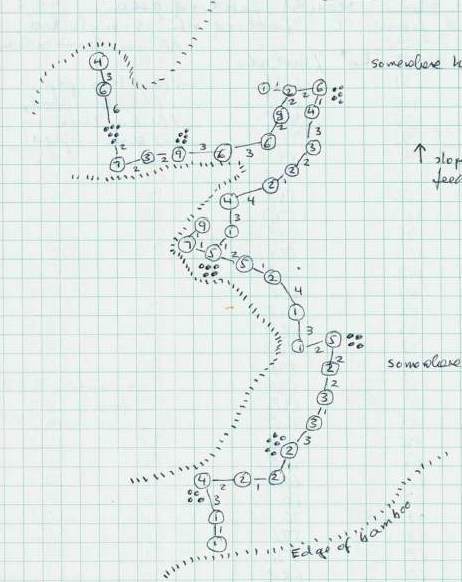 4
3
6
6
2
7 2 3 2 9 3 6 3 6
2
9
2
1 1 2 2 6
1
4
3
3
2
2
1
2
4
4
3
1
1
9
1
7 1 5 2 5 1 2
4
1
3
1 2 5
2
2
2
3
1
3
3
2
1
4 2 2 1 2
3
1
1
1
somewhere
↑ slop
feed
somewhere
Edge of bamboo